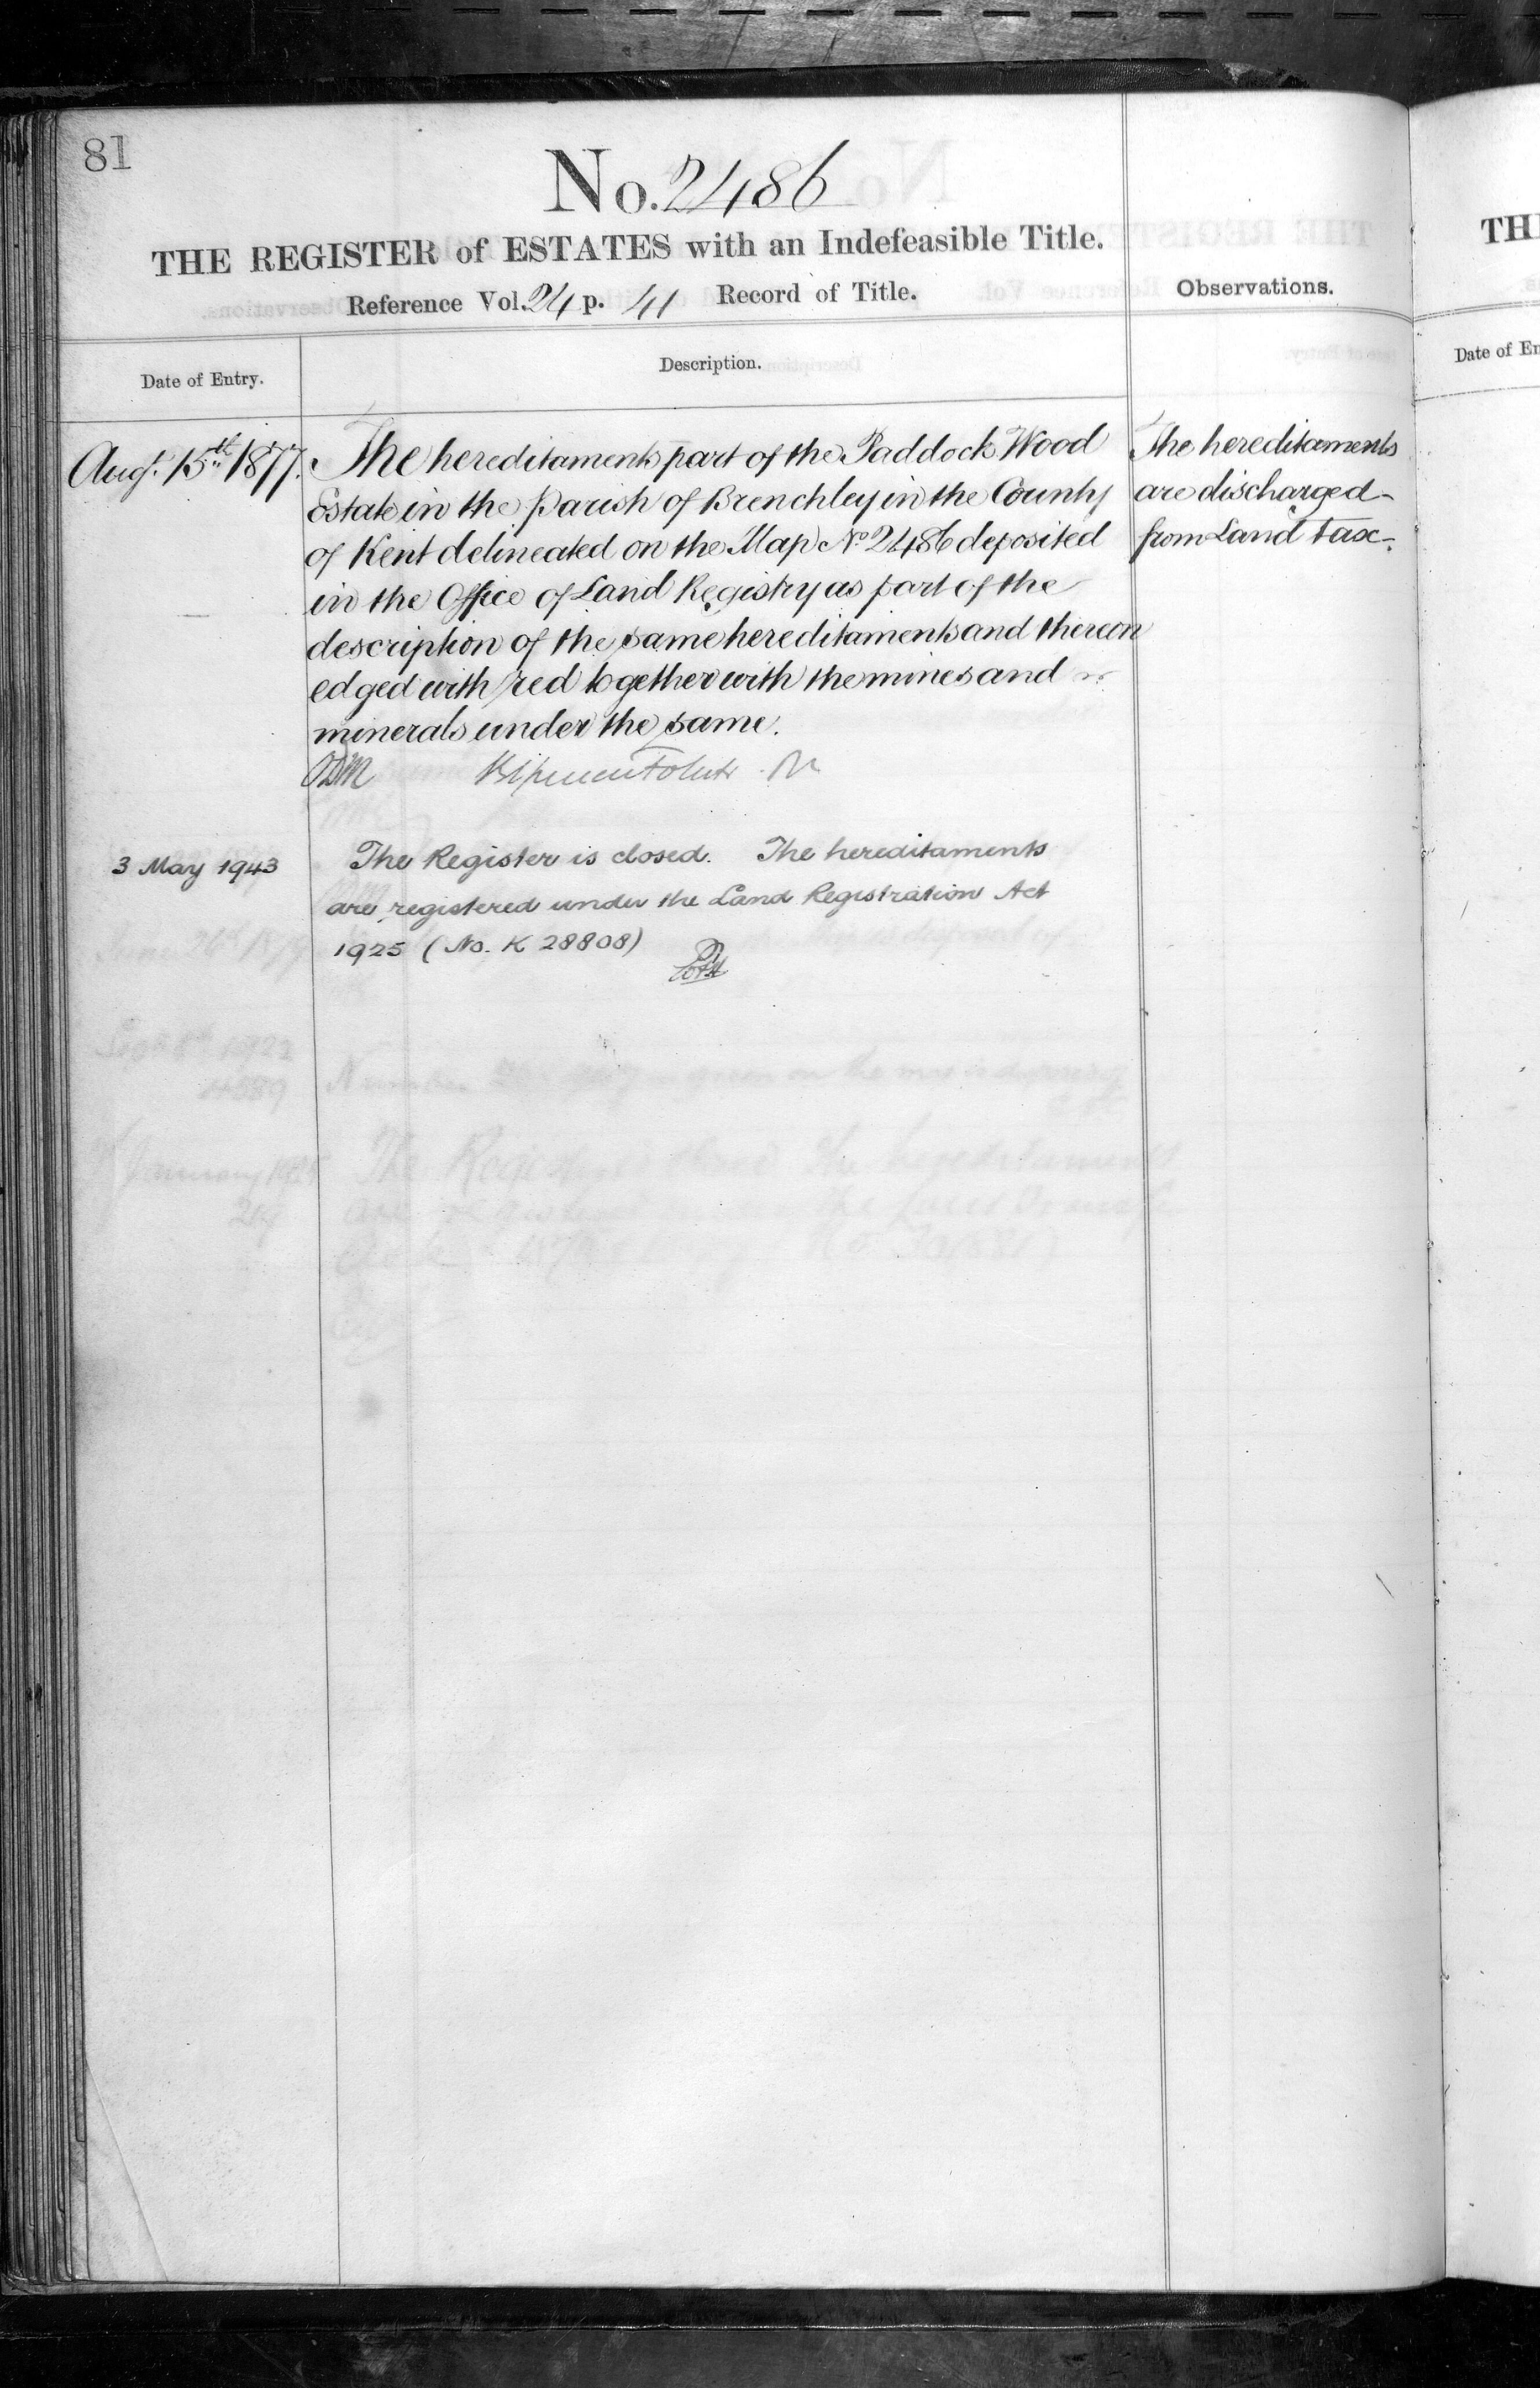 81
No. 2486
THE REGISTER of ESTATES with an Indefeasible Title.
Reference Vol. 24 p. 41 Record of Title.
Observations.
Date of Entry.
Description.
Augt. 15th 1877.
The hereditaments part of the Paddock Wood
Estate in the Parish of Brenchley in the County
of Kent delineated on the Map No 2486 deposited
in the Office of Land Registry as part of the
description of the same hereditaments and thereon
edged with red together with the mines and
minerals under the same.
The hereditaments
are discharged
from Land tax.
3 May 1943
The Register is closed. The hereditaments
are registered under the Land Registration Act
1925 (No. K 28808)
TH
Date of En